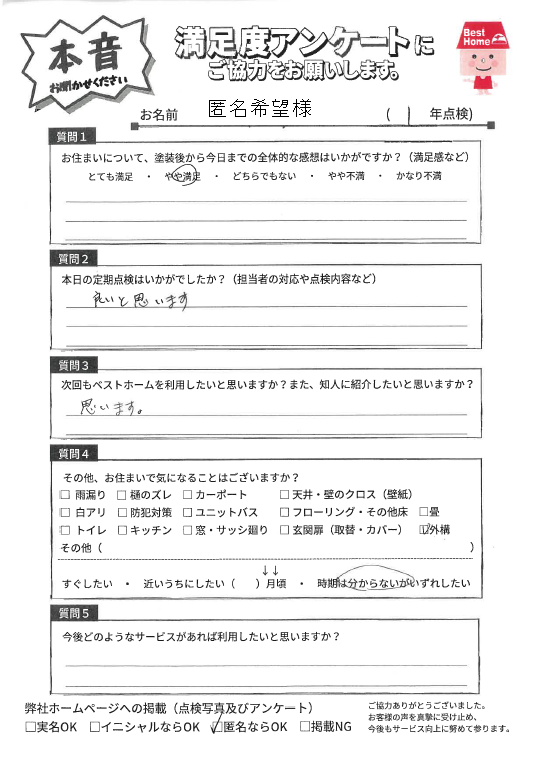 本音
お聞かせください
満足度アンケートに
ご協力をお願いします。
Best
Home
お名前 匿名希望様 ( 1 年点検)
質問1
お住まいについて、塗装後から今日までの全体的な感想はいかがですか?(満足感など)
とても満足 ・ やや満足 ・ どちらでもない ・ やや不満 ・ かなり不満
質問2
本日の定期点検はいかがでしたか?(担当者の対応や点検内容など)
良いと思います
質問3
次回もベストホームを利用したいと思いますか?また、知人に紹介したいと思いますか?
思います。
質問4
その他、お住まいで気になることはございますか?
□ 雨漏り □ 樋のズレ □ カーポート □ 天井・壁のクロス(壁紙)
□ 白アリ □ 防犯対策 □ ユニットバス □ フローリング・その他床 □畳
□ トイレ □ キッチン □ 窓・サッシ廻り □ 玄関扉(取替・カバー) ☑外構
その他( )
↓↓
すぐしたい ・ 近いうちにしたい( )月頃 ・ 時期は分からないがいずれしたい
質問5
今後どのようなサービスがあれば利用したいと思いますか?
弊社ホームページへの掲載(点検写真及びアンケート)
□実名OK □イニシャルならOK ☑匿名ならOK □掲載NG
ご協力ありがとうございました。
お客様の声を真摯に受け止め、
今後もサービス向上に努めて参ります。